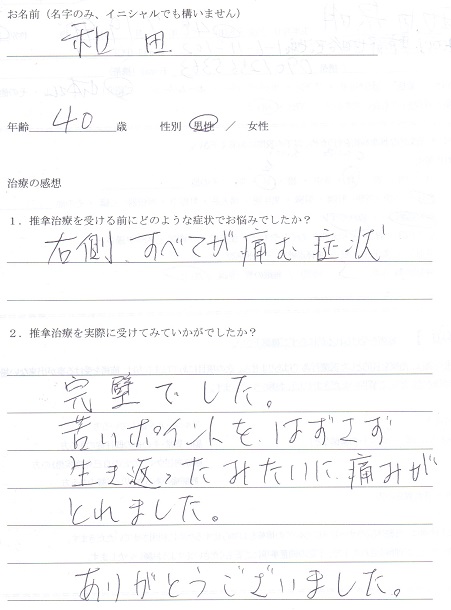 お名前（名字のみ、イニシャルでも構いません）
和田
年齢 40 歳 性別 男性 ／ 女性
治療の感想
１．推拿治療を受ける前にどのような症状でお悩みでしたか？
右側、すべてが痛む症状
２．推拿治療を実際に受けてみていかがでしたか？
完璧でした。
苦いポイントを、はずさず
生き返ったみたいに、痛みが
とれました。
ありがとうございました。